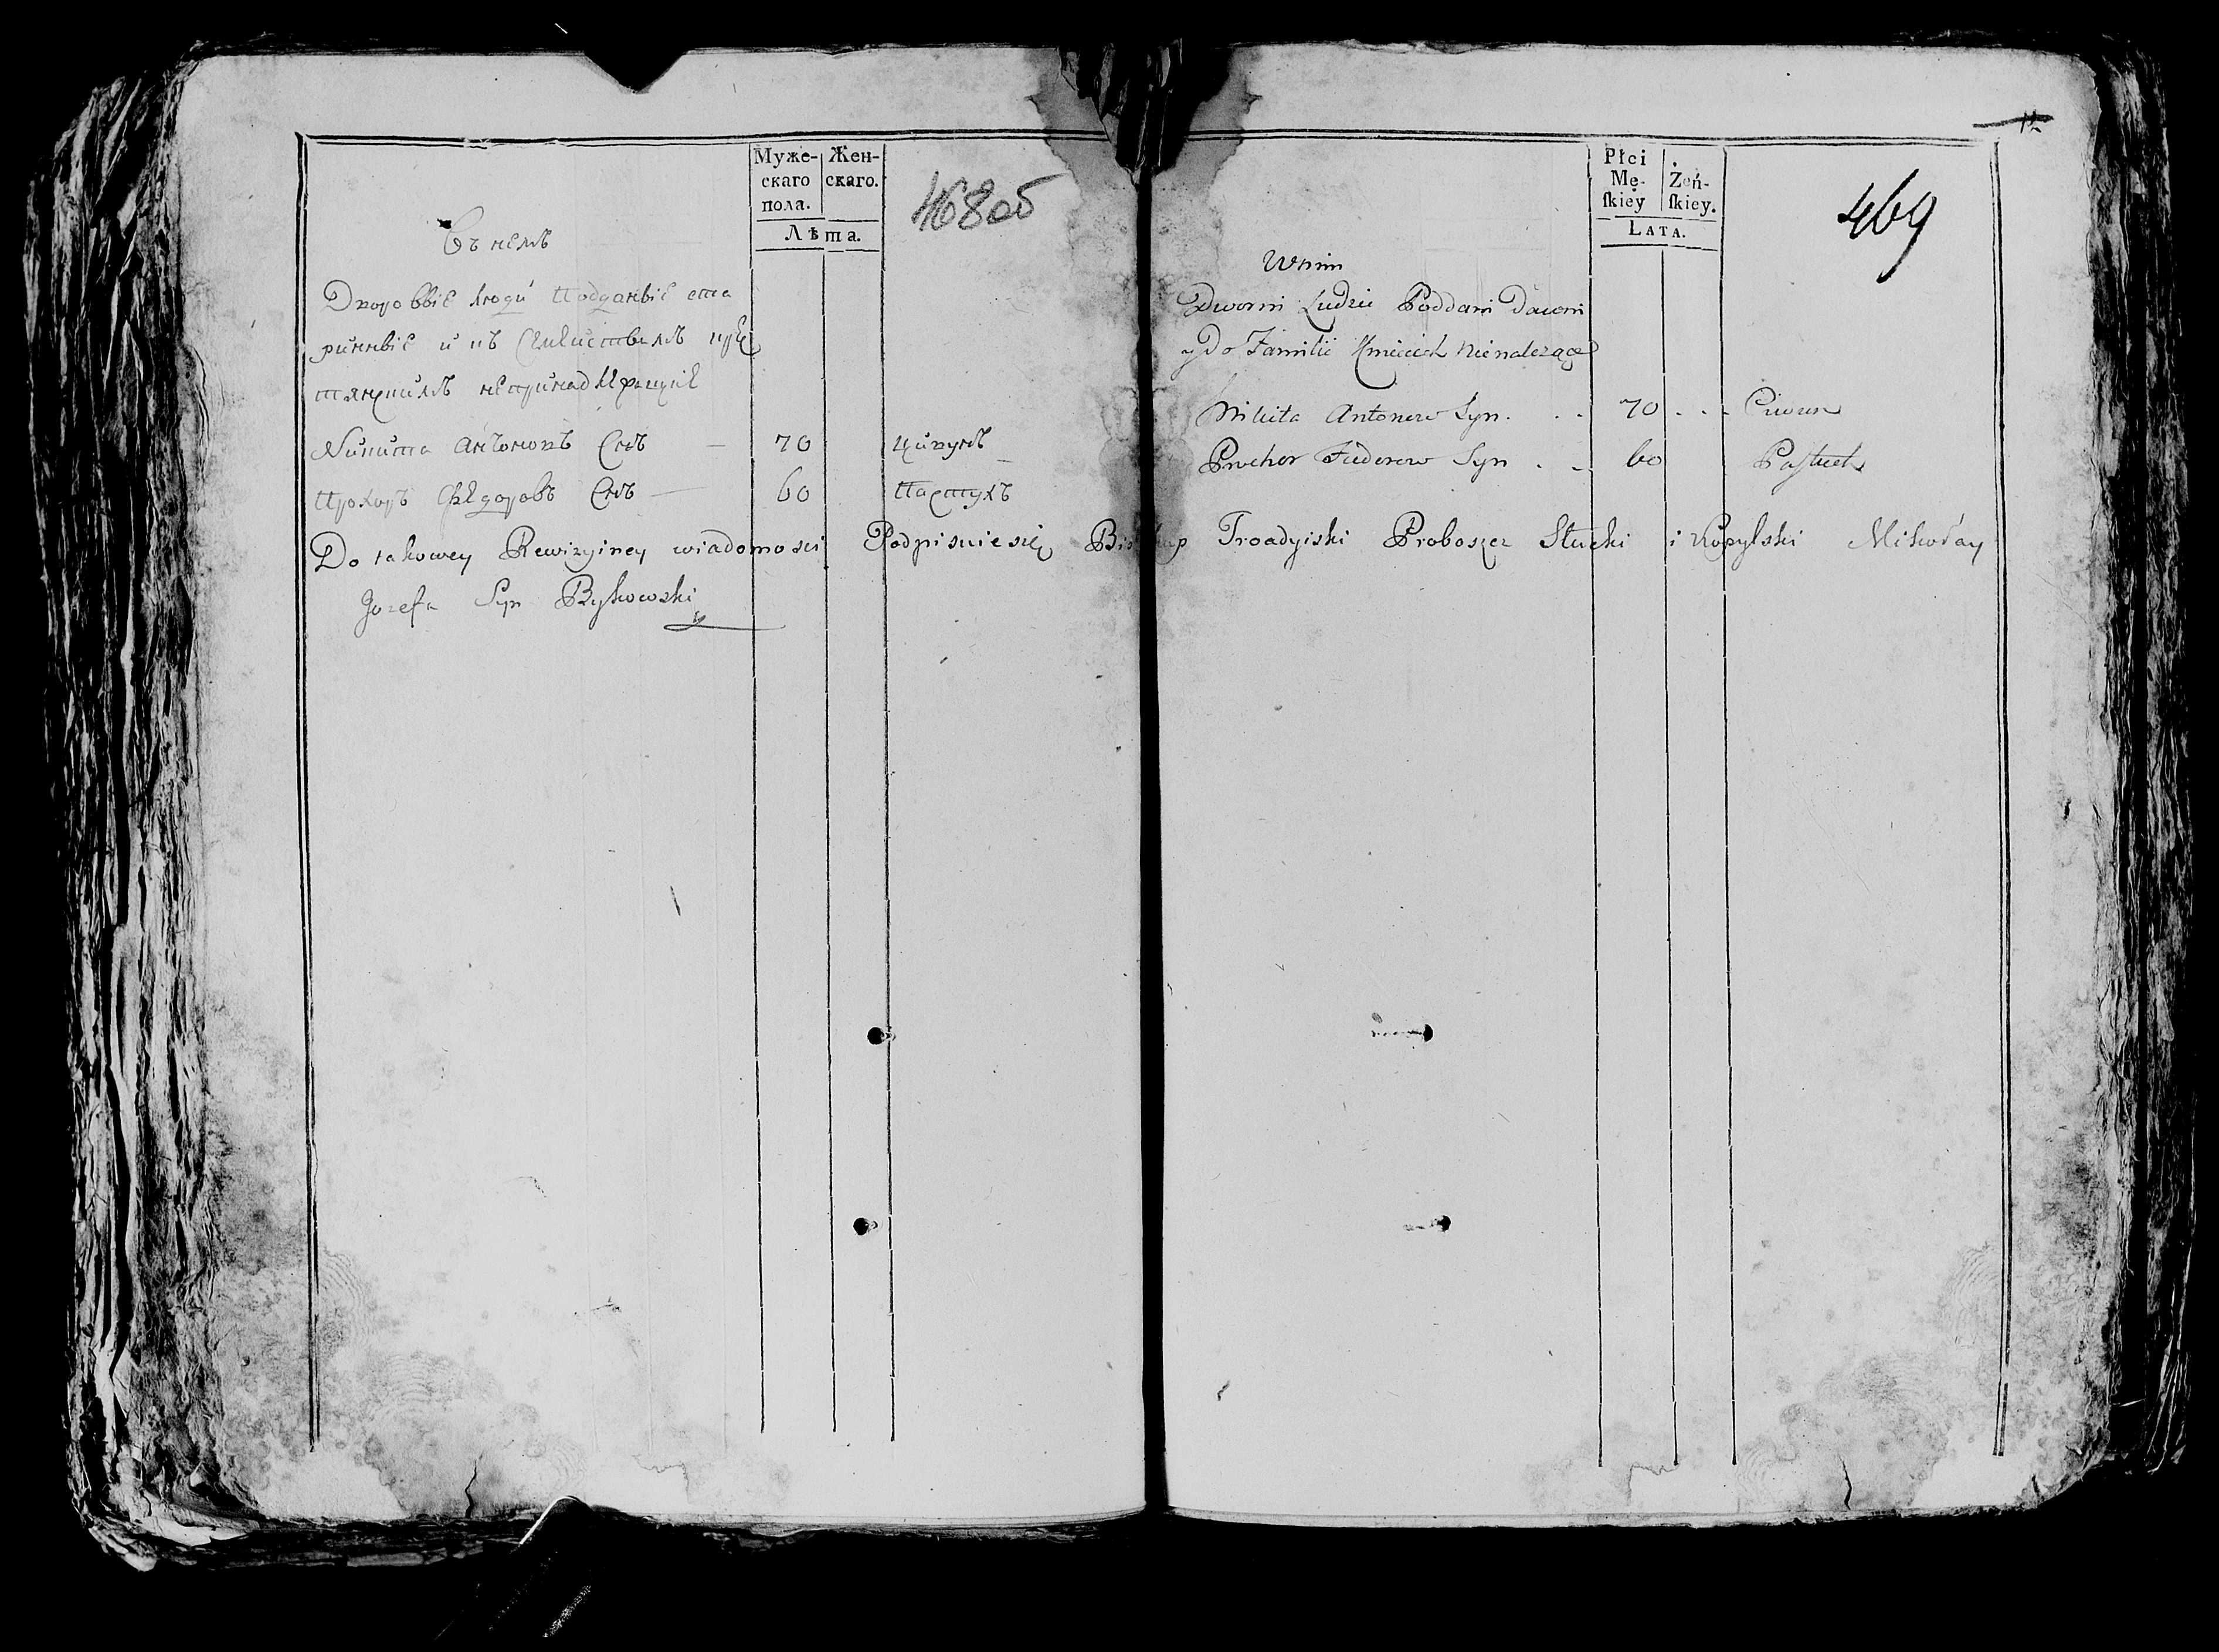 Муже-
скаго
пола.
Жен-
скаго.
Лѣта.
468об
Въ немъ
Дворовыіе люди Подданыіе ста
ринныіе и къ Семействамъ кре
стянскимъ непринадлежащие
Никита Антоновъ Снъ — 70 Цивунъ
Прохоръ Федоровъ Снъ — 60 Пастухъ
Płci
Mę-
ſkiey
Żeń-
ſkiey.
LATA.
12
469
W nim
Dworni Ludzie Poddani Dawni
y Do Familii Kmiecich nie należące
Nikita Antonow Syn . . . 70 . . . Ciwun
Prochor Fiedorow Syn . . 60 Paſtuch
Do takowey Rewizyiney wiadomosci Podpisuie się Biskup Troadyiski Proboszcz Słucki i Kopylski Mikołay
Jozefa Syn Bykowski